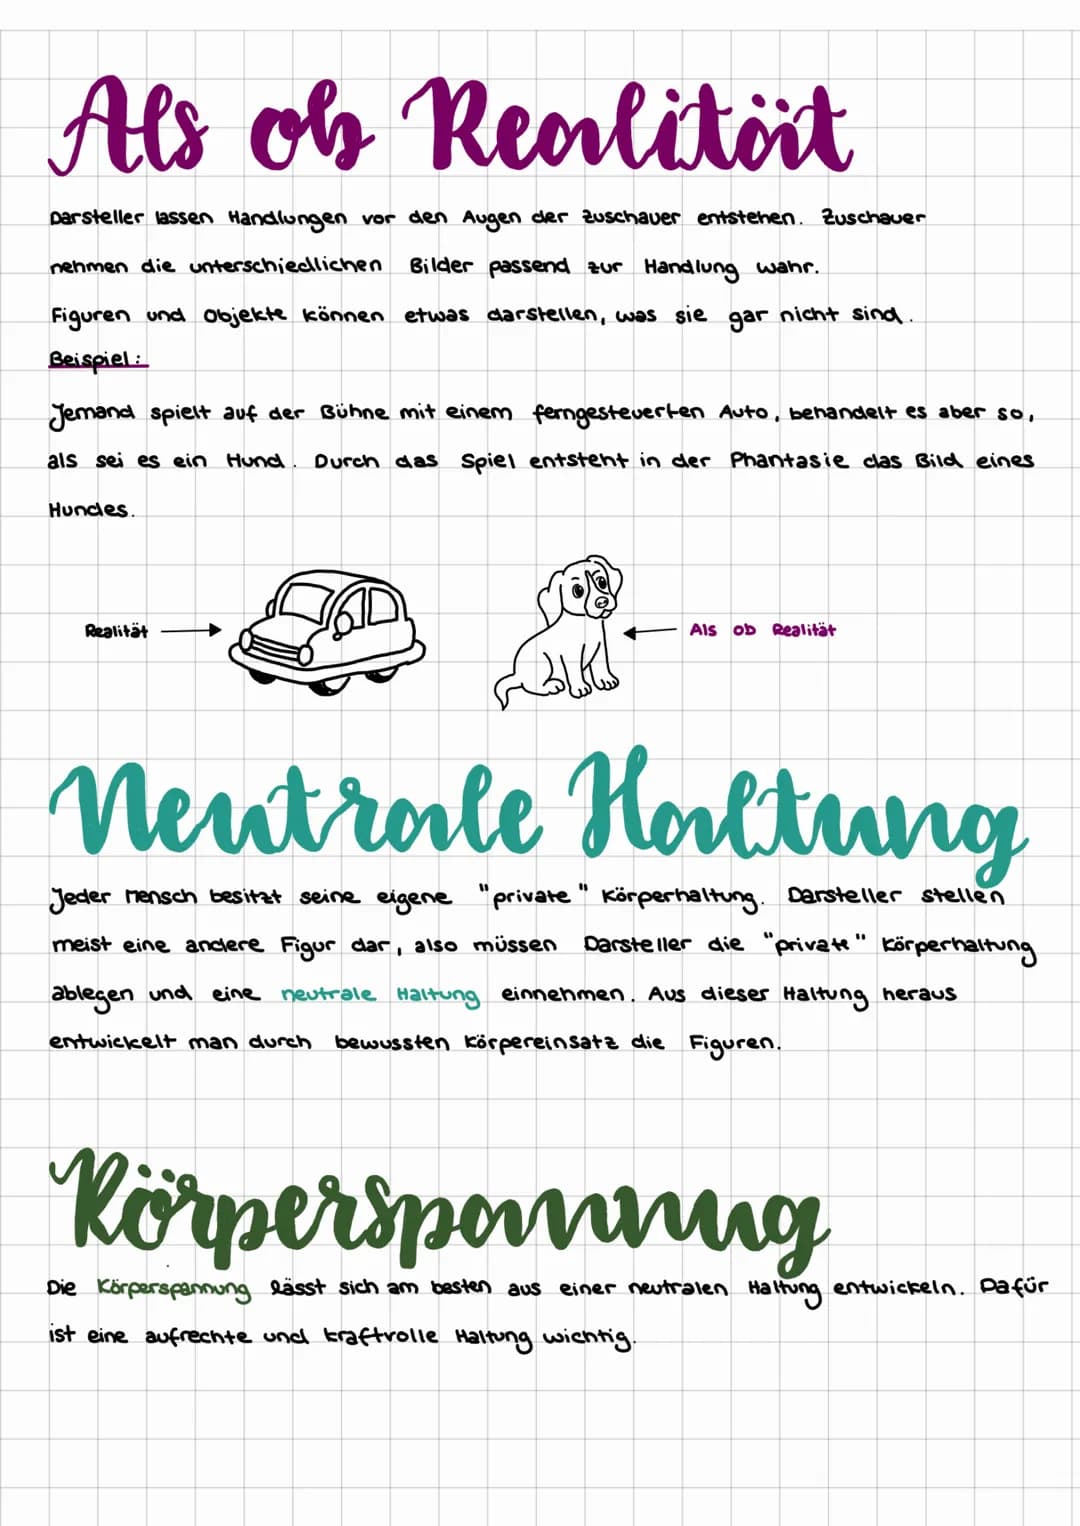 Als ob Realität
Darsteller lassen Handlungen vor den Augen der Zuschauer entstehen. Zuschauer
nehmen die unterschiedlichen Bilder passend zur Handlung wahr.
Figuren und Objekte können etwas darstellen, was sie gar nicht sind.
Beispiel:
Jemand spielt auf der Bühne mit einem ferngesteuerten Auto, behandelt es aber so,
als sei es ein Hund. Durch das Spiel entsteht in der Phantasie das Bild eines
Hundes.
Realität
Als ob Realität
Neutrale Haltung
Jeder Mensch besitzt seine eigene "private" Körperhaltung. Darsteller stellen
meist eine andere Figur dar, also müssen Darsteller die "private" Körperhaltung
ablegen und eine neutrale Haltung einnehmen. Aus dieser Haltung heraus
entwickelt man durch bewussten Körpereinsatz die Figuren.
Körperspannung
Die Körperspannung lässt sich am besten aus einer neutralen Haltung entwickeln. Dafür
ist eine aufrechte und kraftvolle Haltung wichtig.